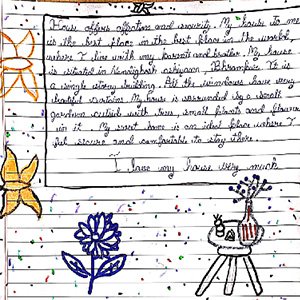 House offers affection and security. My house to me
is the best place in the best place in the world,
where I live with my parents and brother. My house
is situated in
a single storey building. All the windows have very
beautiful curtains. My house is surrounded by a small
garden with trees, small plants and flowers
in it. My sweet home is an ideal place where I
feel secure and comfortable to stay there.
I love my house very much